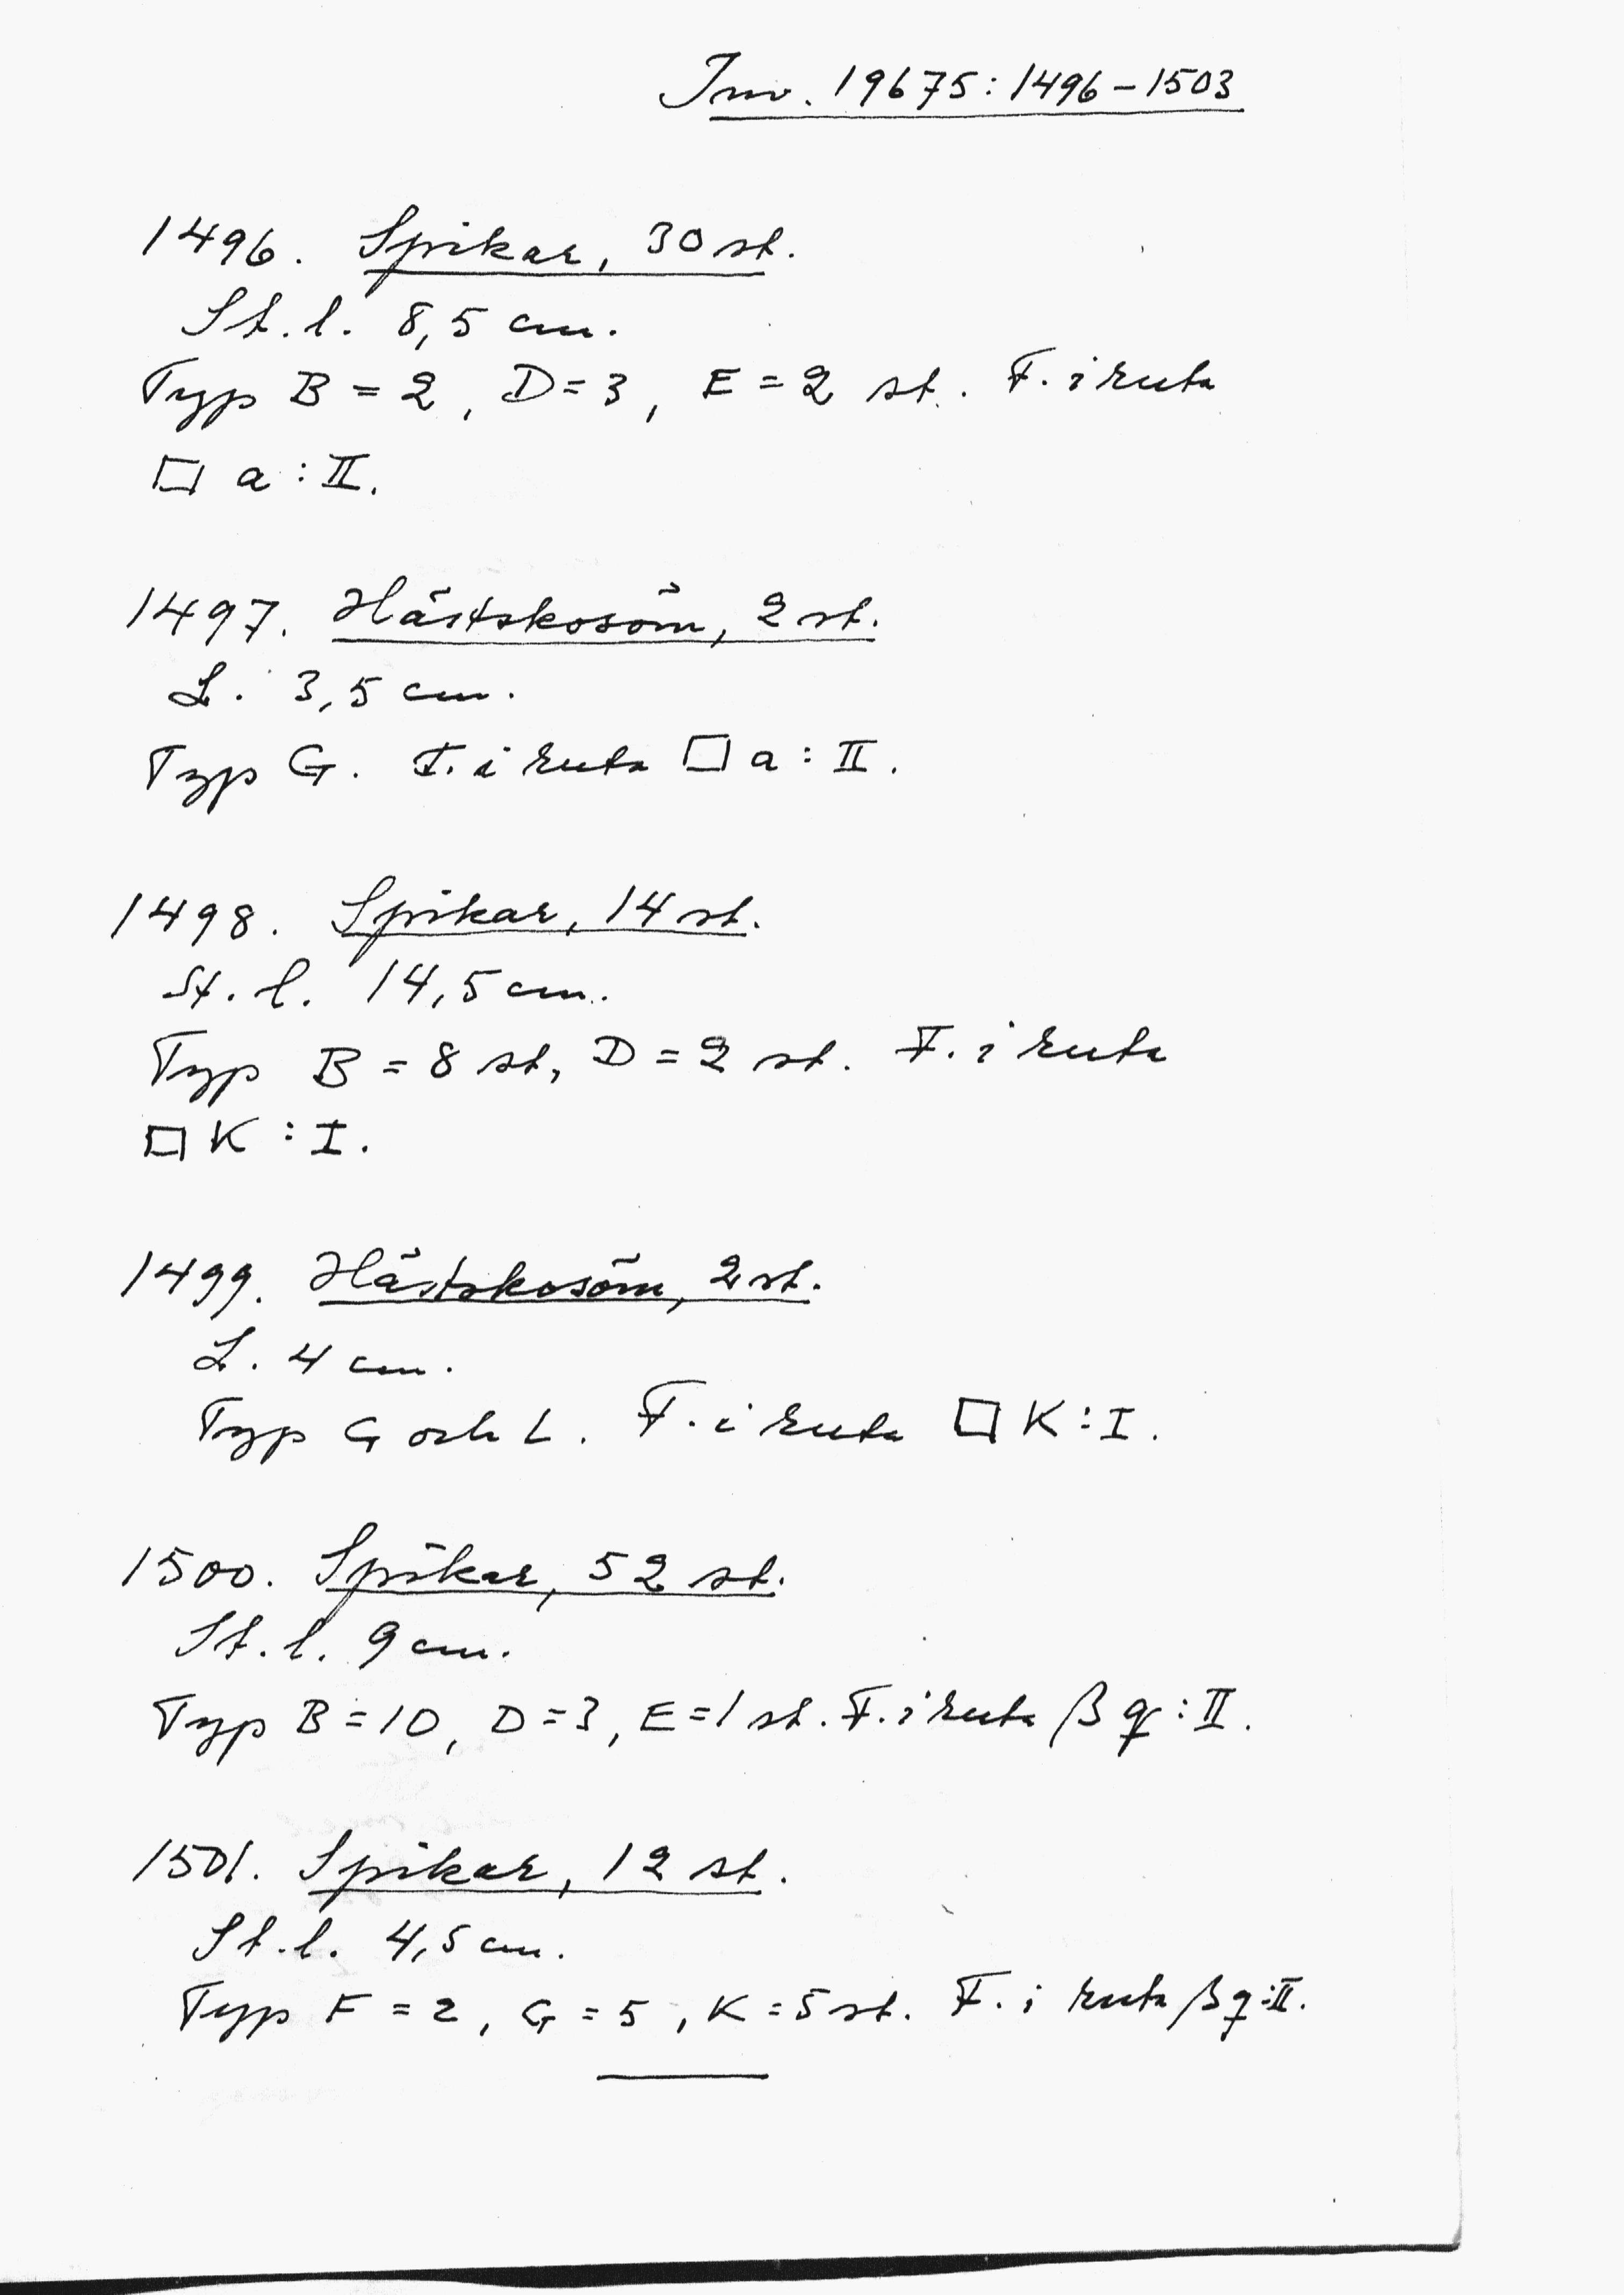 Inv. 19675:1496-1503
1496. Spikar, 30 st.
St. l. 8,5 cm.
Typ B = 2, D = 3, E = 2 st. F. i ruta
□ a : II.
1497. Hästskosöm, 2 st.
L. 3,5 cm.
Typ G. F. i ruta □ a : II.
1498. Spikar, 14 st.
St. l. 14,5 cm.
Typ B = 8 st, D = 2 st. F. i ruta
□ K : I.
1499. Hästskosöm, 2 st.
L. 4 cm.
Typ G och L. F. i ruta □ K : I.
1500. Spikar, 52 st.
St. l. 9 cm.
Typ B = 10, D = 3, E = 1 st. F. i ruta β q : II.
1501. Spikar, 12 st.
St. l. 4,5 cm.
Typ F = 2, G = 5, K = 5 st. F. i ruta β q : II.